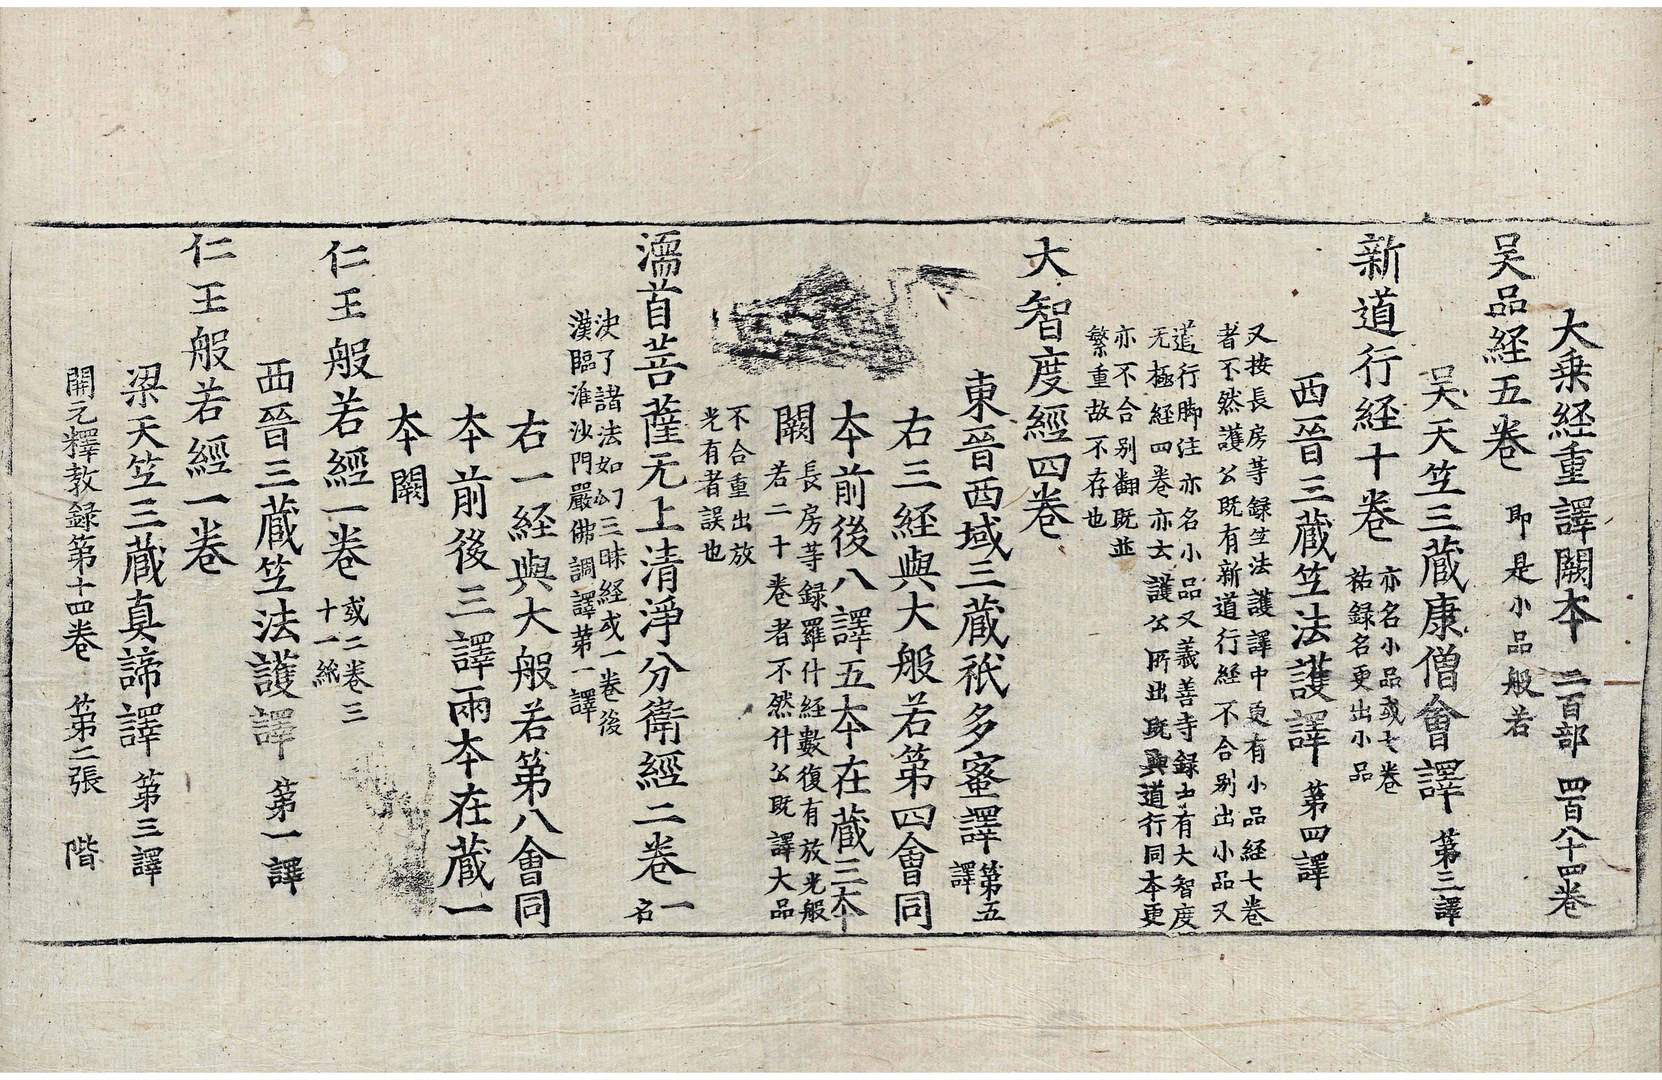 大乗経重譯闕本 二百部 四百八十四卷
吴品経五卷 即是小品般若
吴天竺三蔵康僧會譯 第三譯
新道行経十卷 亦名小品或七卷
祐録名更出小品
西晉三蔵竺法護譯 第四譯
又按長房等録竺法護譯中更有小品経七卷
者不然護公既有新道行経不合别出小品又
道行脚注亦名小品又義善寺録士有大智度
无極経四卷亦云護公所出既與道行同本更
亦不合别翻既並
繁重故不存也
大智度經四卷
東晉西域三蔵祇多蜜譯 第五
譯
右三経與大般若第四會同
本前後八譯五本在蔵三本
闕 長房等録羅什経數復有放光般
若二十卷者不然什公既譯大品
不合重出放
光有者誤也
濡首菩薩无上清淨分衛經二卷 一
名
決了諸法如幻三昧経或一卷後
漢臨淮沙門嚴佛調譯第一譯
右一経與大般若第八會同
本前後三譯兩本在蔵一
本闕
仁王般若經一卷 或二卷三
十一紙
西晉三蔵竺法護譯 第一譯
仁王般若經一卷
梁天竺三蔵真諦譯 第三譯
開元釋教録第十四卷 第二張 階